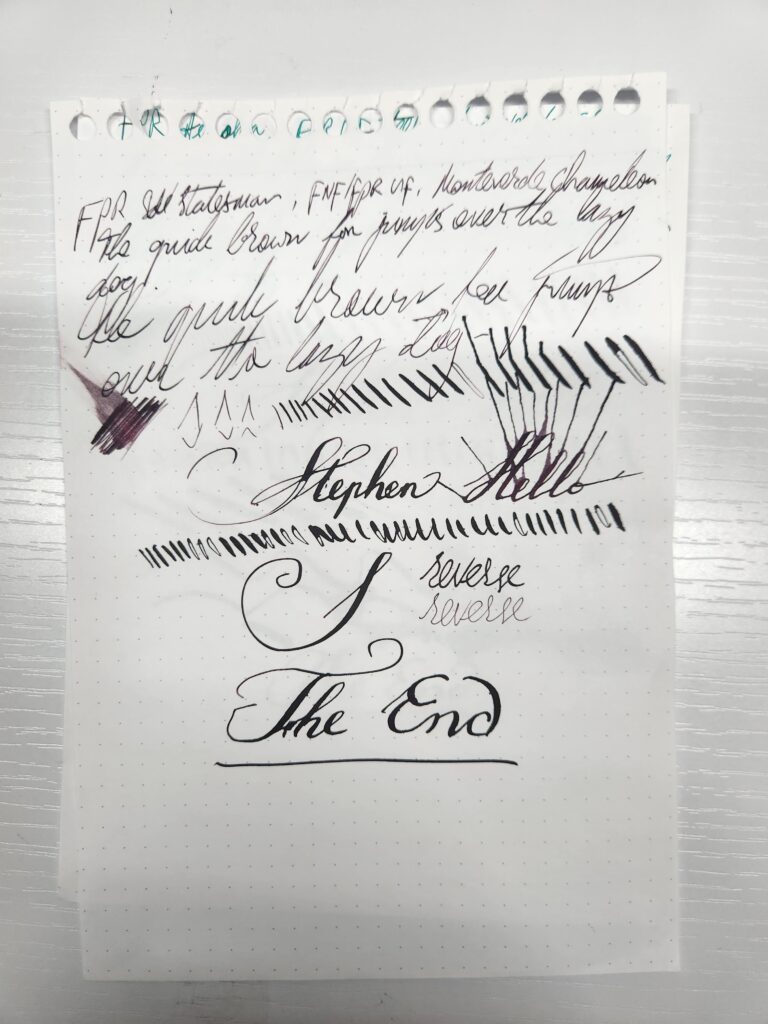 FPR Statesman, FNF/FPR UF, Monteverde Chameleon
The quick brown fox jumps over the lazy
dog.
The quick brown fox jumps
over the lazy dog
Stephen Hello
S reverse
reverse
The End